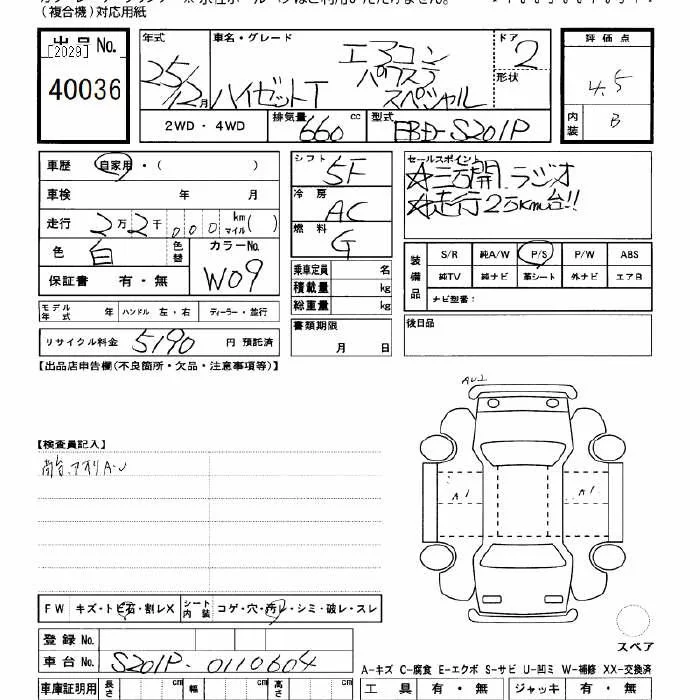 (複合機)対応用紙
出品 No.
[2029]
40036
年式
25/12月
車名・グレード
ハイゼットT
エアコン
パワステ
スペシャル
ドア
2
形状
2WD・4WD
排気量 660 cc
型式 EBD-S201P
評価点
4.5
内装 B
車歴 自家用・( )
車検 年 月
走行 2万2千000 km マイル( )
色 白
色替
カラーNo.
W09
保証書 有・無
モデル年式 年 ハンドル 左・右 ディーラー・並行
リサイクル料金 5190 円 預託済
シフト 5F
冷房 AC
燃料 G
乗車定員 名
積載量 kg
総重量 kg
書類期限
月 日
セールスポイント
☆三方開 ラジオ
☆走行2万km台!!
装備品
S/R 純A/W P/S P/W ABS
純TV 純ナビ 革シート 外ナビ エアB
ナビ型番:
後日品
【出品店申告欄(不良箇所・欠品・注意事項等)】
【検査員記入】
荷台、アオリA・U
AU2
A1
A1
FW キズ・トビ石・割レX
シート内装 コゲ・穴・汚レ・シミ・破レ・スレ
登録 No.
車台 No. S201P-0110604
車庫証明用 長さ cm 幅 cm 高さ cm
スペア
A-キズ C-腐食 E-エクボ S-サビ U-凹ミ W-補修 XX-交換済
工具 有・無 ジャッキ 有・無